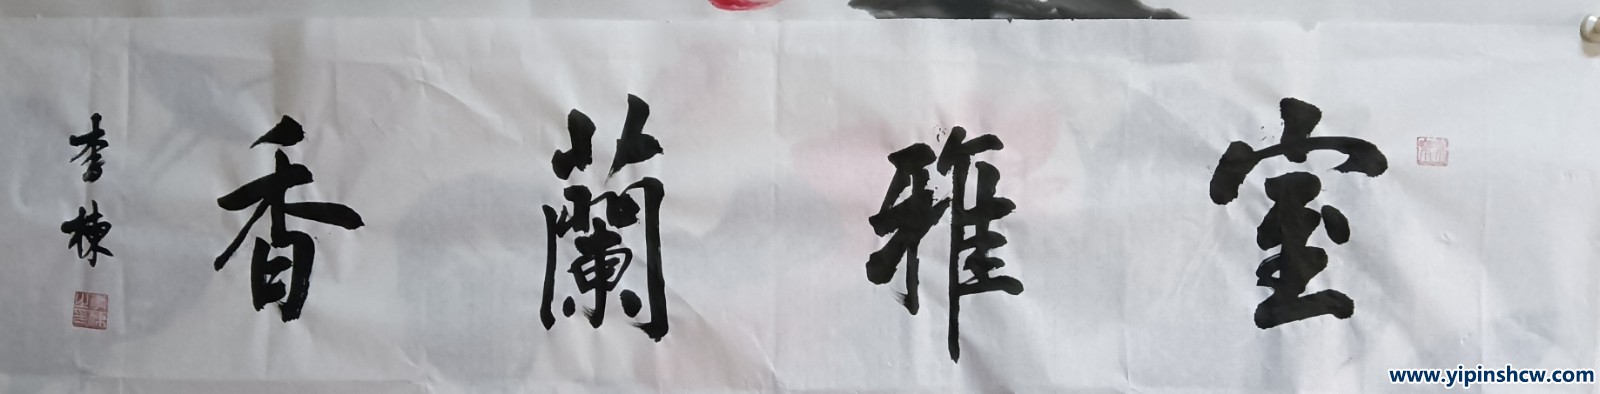 室雅蘭香
李棟
www.yipinshcw.com